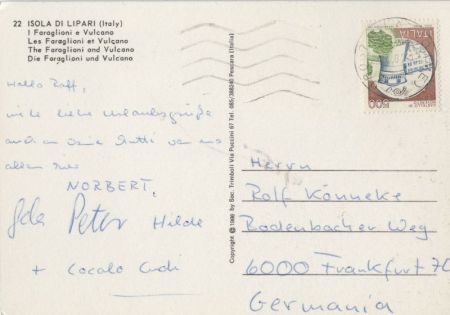 22 ISOLA DI LIPARI (Italy)
I Faraglioni e Vulcano
Les Faraglioni et Vulcano
The Faraglioni and Vulcano
Die Faraglioni und Vulcano
Hallo Rolf,
viele liebe Urlaubsgrüße
auch an Deine Mutti von uns
allen hier
NORBERT,
Peter Hilde
+
Copyright © by Sac. Trimboli Via Puccini 67 Tel. 085/388240 Pescara (Italia)
ITALIA
500
Herrn
Rolf Könneke
Bodenbacher Weg
6000 Frankfurt 70
Germania